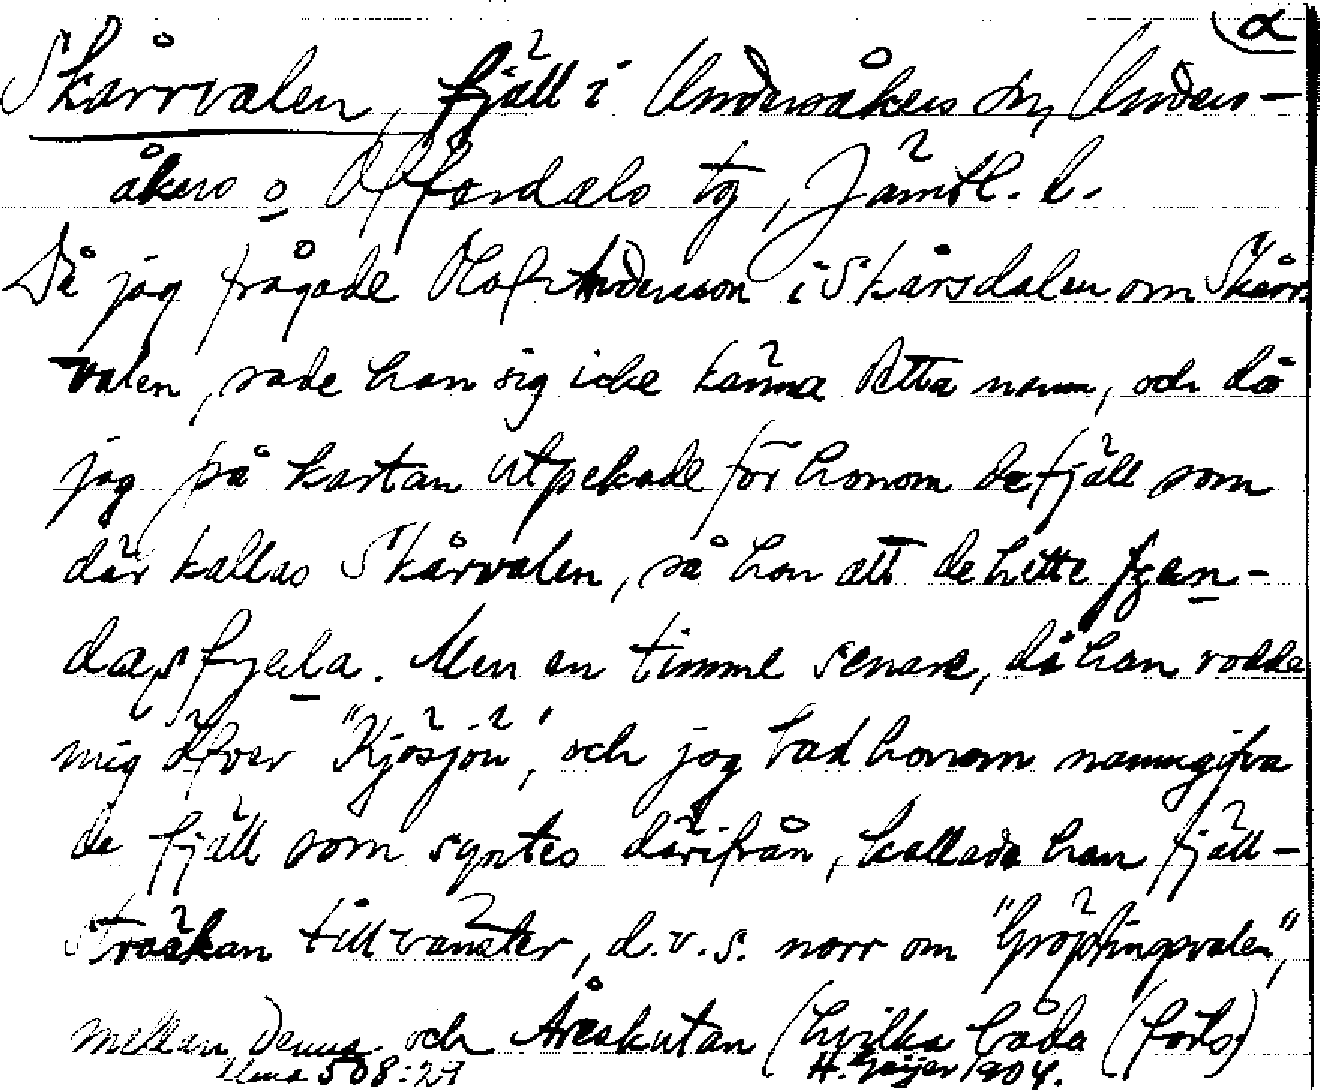 α
Skårrvalen, fjäll i Undersåkers sn, Unders-
åkers o Offerdals tg, Jämtl. l.
Då jag frågade Olof Andersson i Skårsdalen om Skårr-
valen, sade han sig icke känna detta namn, och då
jag på kartan utpekade för honom de fjäll som
där kallas Skårvalen, sa han att de hitte
fjäla. Men en timme senare, då han rodde
mig öfver "Kjösjön", och jag bad honom namngifva
de fjäll som syntes därifrån, kallade han fjäll-
sträckan till vänster, d.v.s. norr om "Gröptingsvalen",
mellan denna och Åreskutan (hvilka båda (forts)
508:29 H. Geijer 1904.